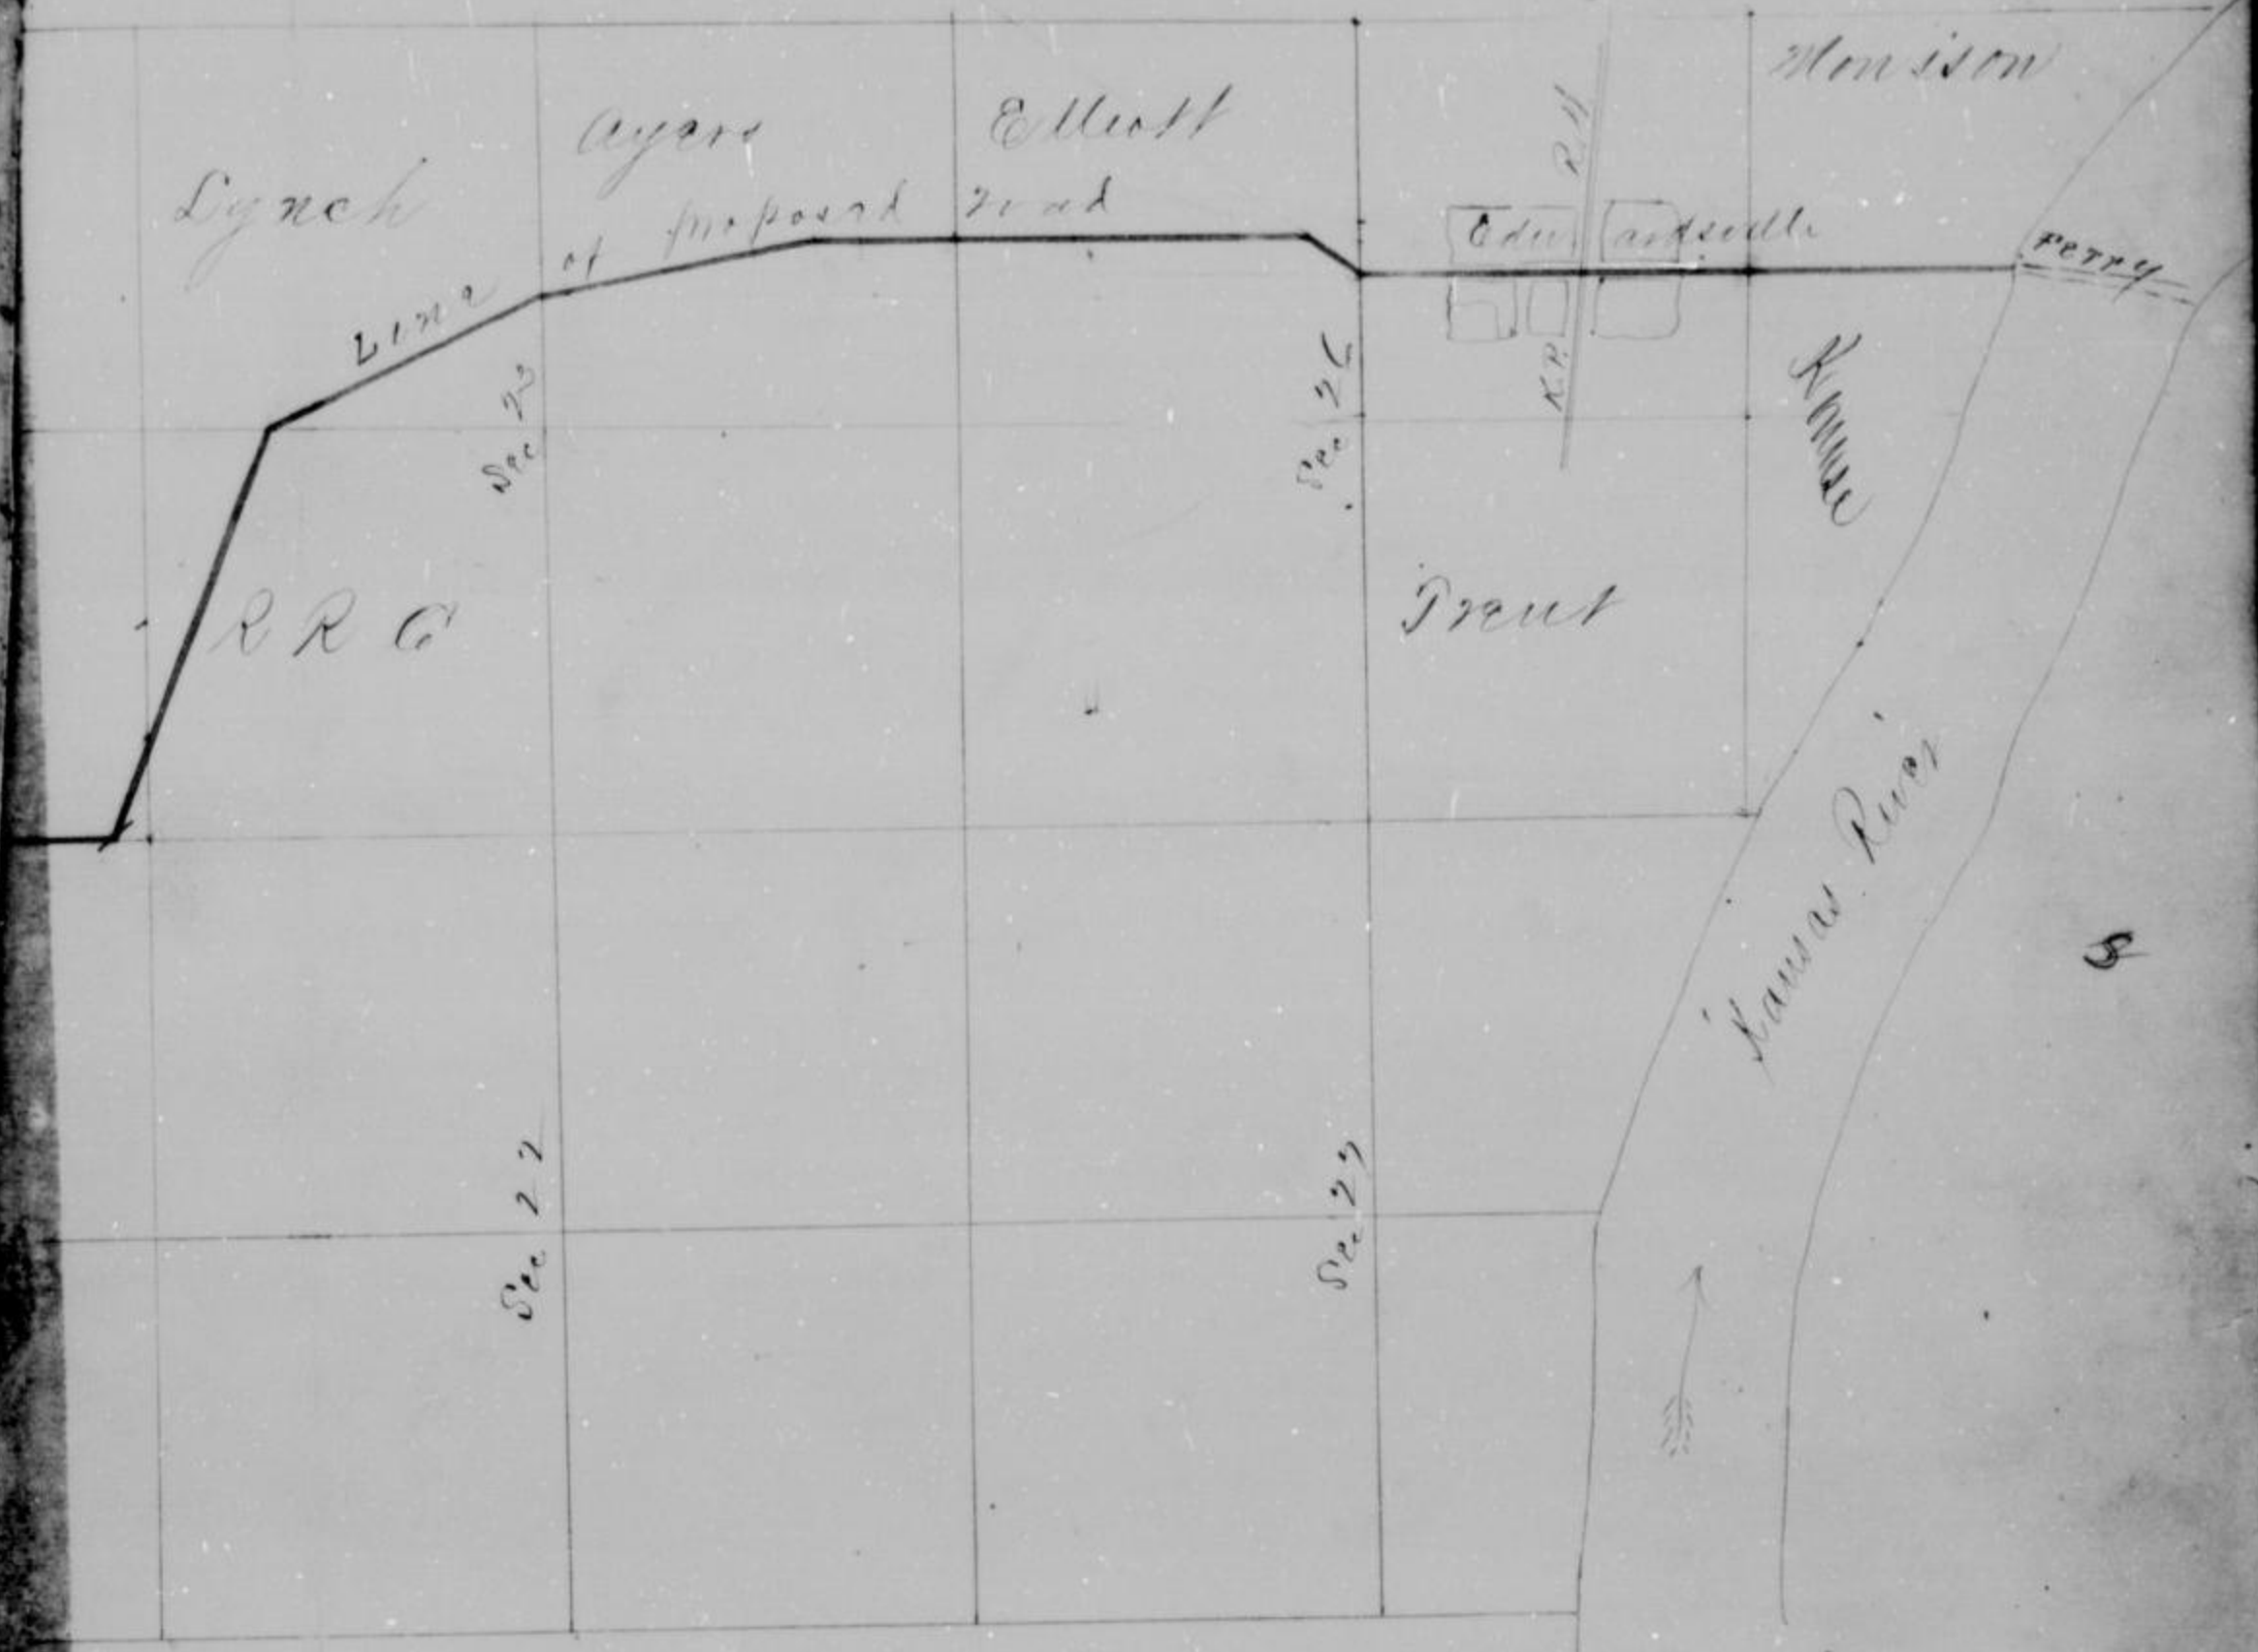 Morrison
Ayers
Elliott
Lynch
Line of proposed road
R. R.
Edwardsville
Ferry
K.P.
Sec 23
Sec 26
R R C
Trent
Kansas River
Sec 22
Sec 27
S